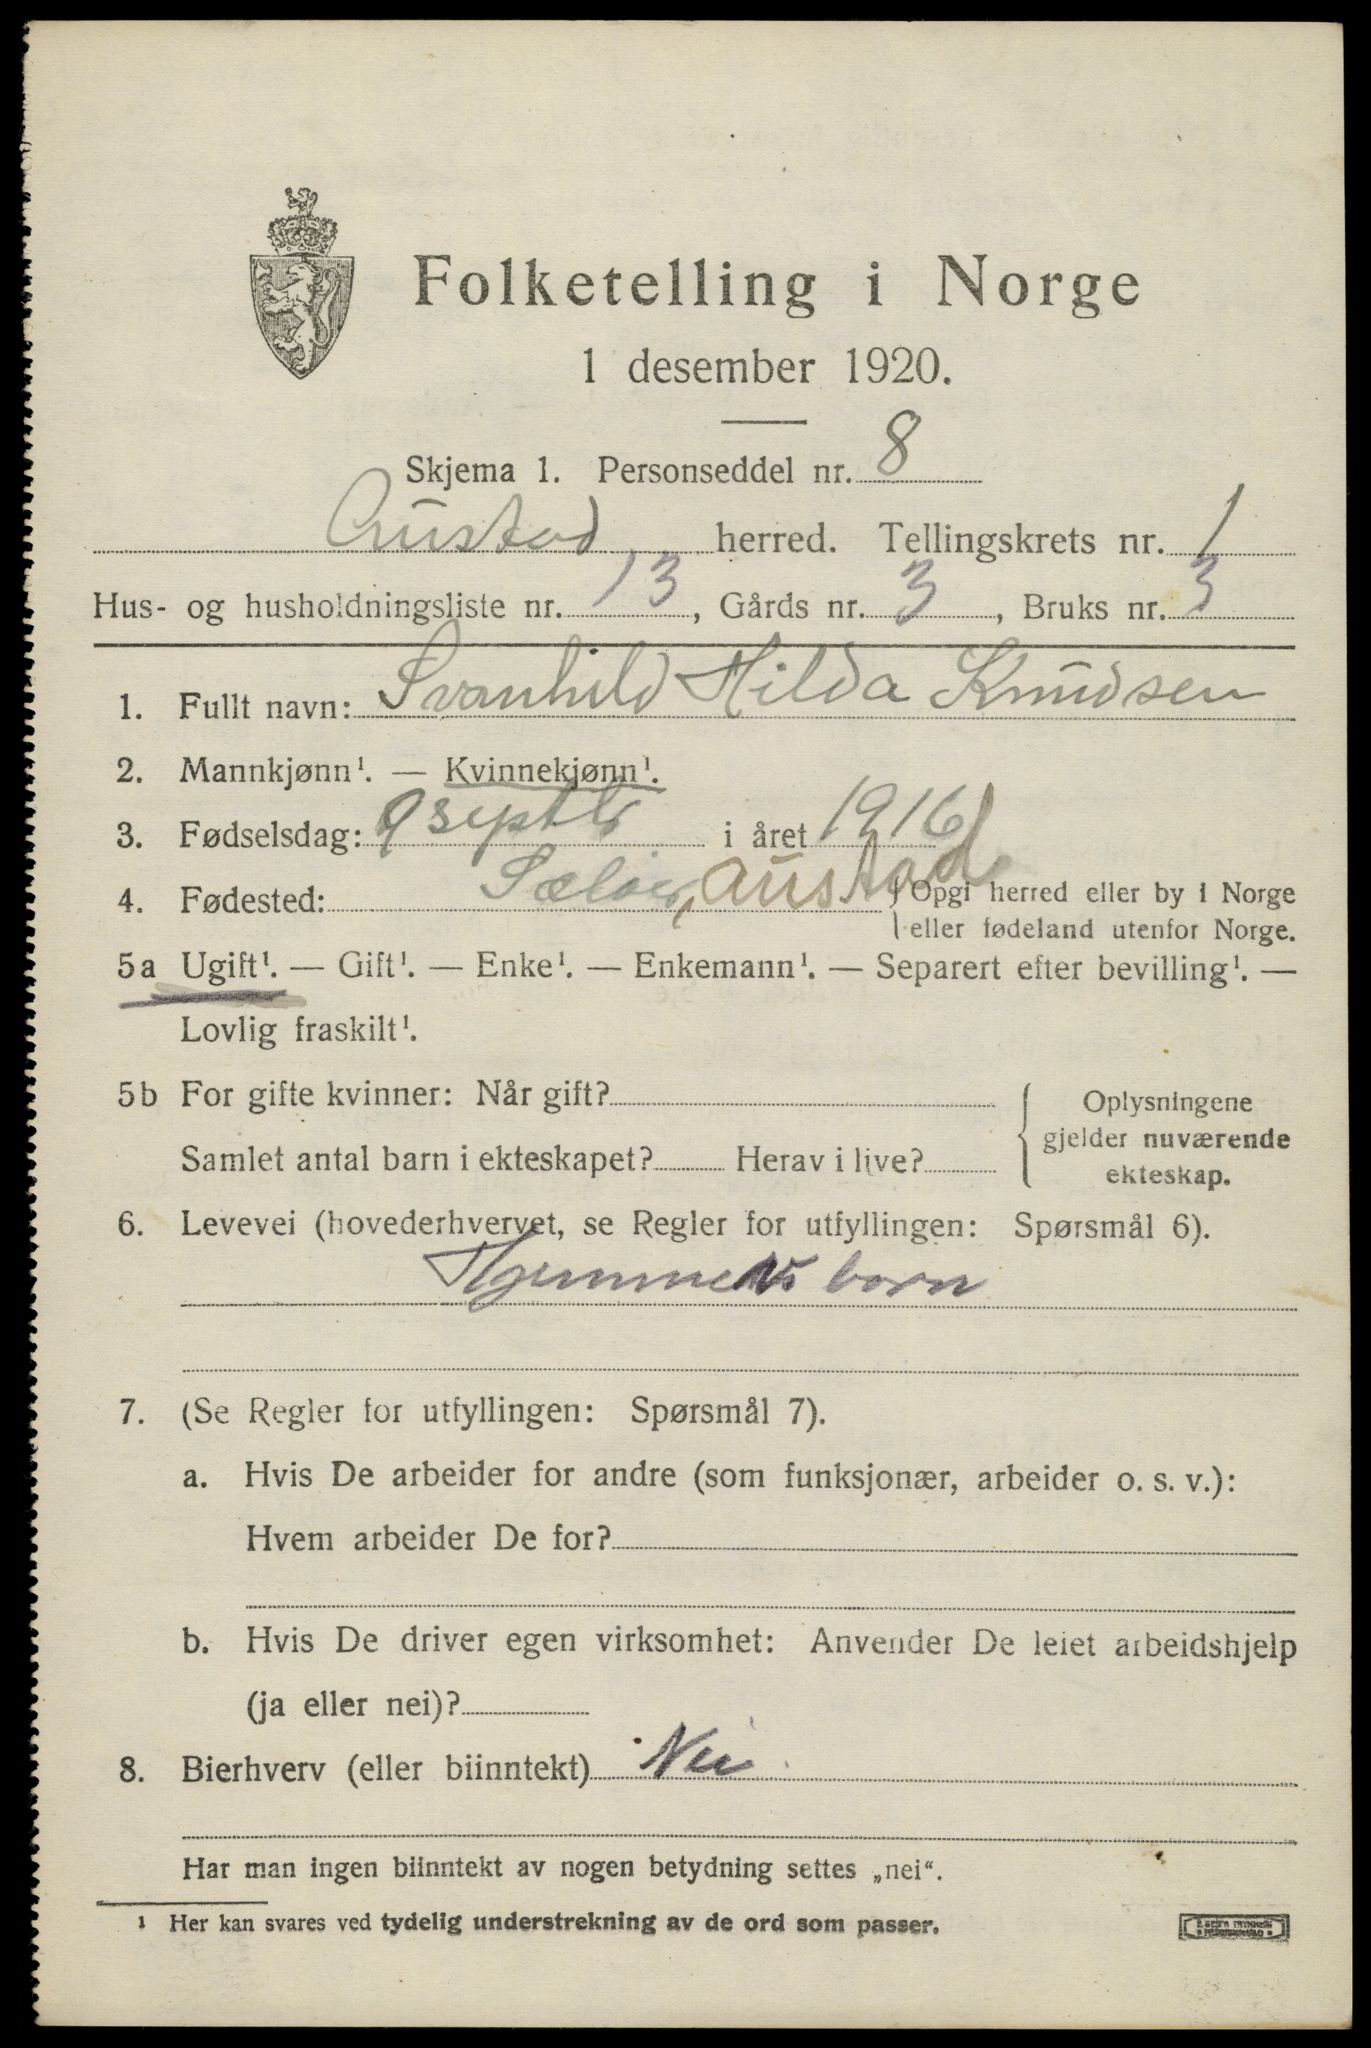 Folketelling i Norge
1 desember 1920.
Skjema 1. Personseddel nr. 8
Austad herred. Tellingskrets nr. 1
Hus- og husholdningsliste nr. 13, Gårds nr. 3, Bruks nr. 3
1. Fullt navn: Svanhild Hilda Knudsen
2. Mannkjønn¹. — Kvinnekjønn¹.
3. Fødselsdag: 9 septbr i året 1916
4. Fødested: Sælør, Austad Opgi herred eller by i Norge
eller fødeland utenfor Norge.
5a Ugift¹. — Gift¹. — Enke¹. — Enkemann¹. — Separert efter bevilling¹. —
Lovlig fraskilt¹.
5b For gifte kvinner: Når gift?
Samlet antal barn i ekteskapet? Herav i live?
Oplysningene
gjelder nuværende
ekteskap.
6. Levevei (hovederhvervet, se Regler for utfyllingen: Spørsmål 6).
Hjemmen born
7. (Se Regler for utfyllingen: Spørsmål 7).
a. Hvis De arbeider for andre (som funksjonær, arbeider o. s. v.):
Hvem arbeider De for?
b. Hvis De driver egen virksomhet: Anvender De leiet arbeidshjelp
(ja eller nei)?
8. Bierhverv (eller biinntekt) Nei
Har man ingen biinntekt av nogen betydning settes „nei“.
¹ Her kan svares ved tydelig understrekning av de ord som passer.